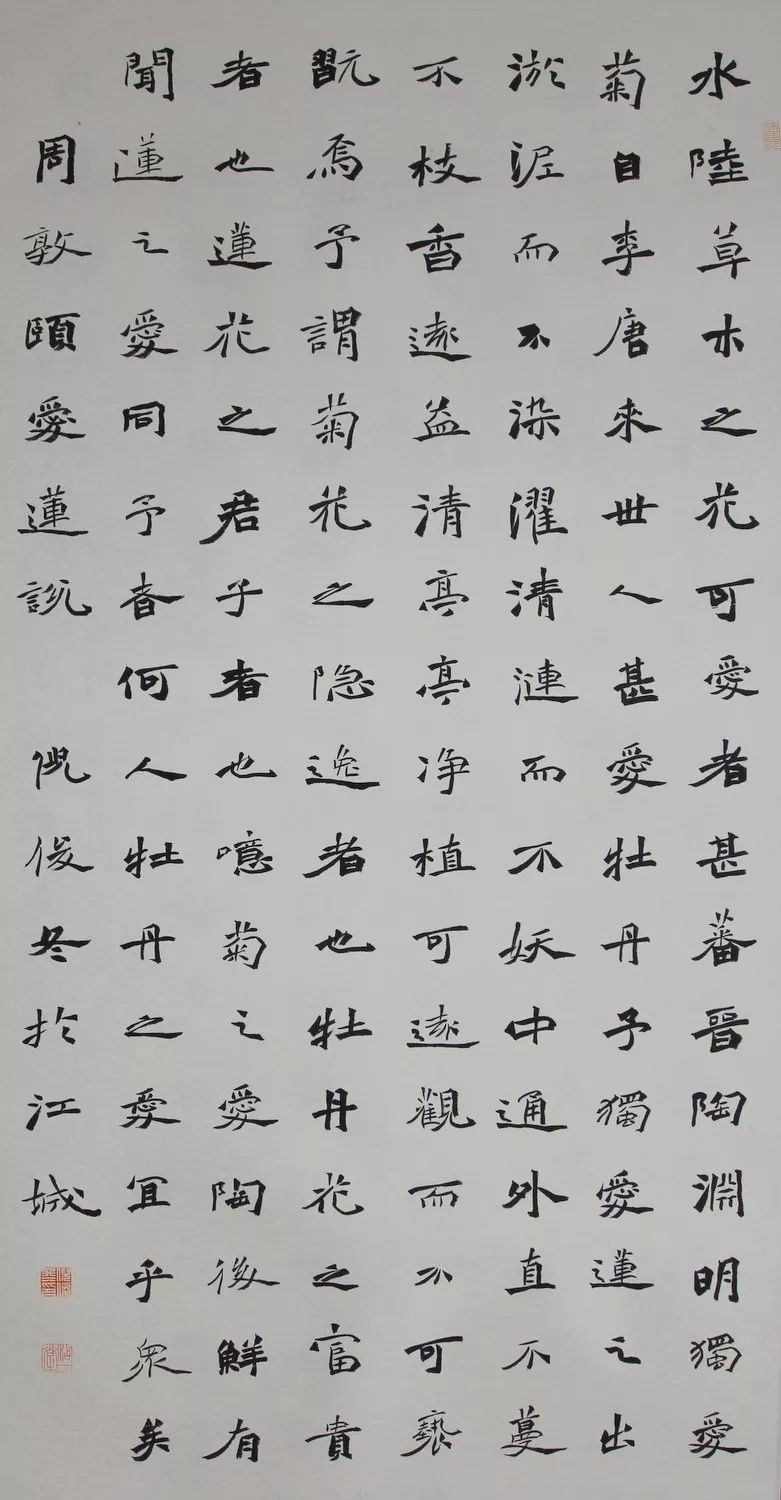 水陸草木之花可愛者甚蕃晉陶淵明獨愛
菊自李唐來世人甚愛牡丹予獨愛蓮之出
淤泥而不染濯清漣而不妖中通外直不蔓
不枝香遠益清亭亭净植可遠觀而不可褻
翫焉予謂菊花之隐逸者也牡丹花之富貴
者也蓮花之君子者也噫菊之愛陶後鮮有
聞蓮之愛同予者何人牡丹之愛宜乎眾矣
周敦頤愛蓮説 俊冬於江城